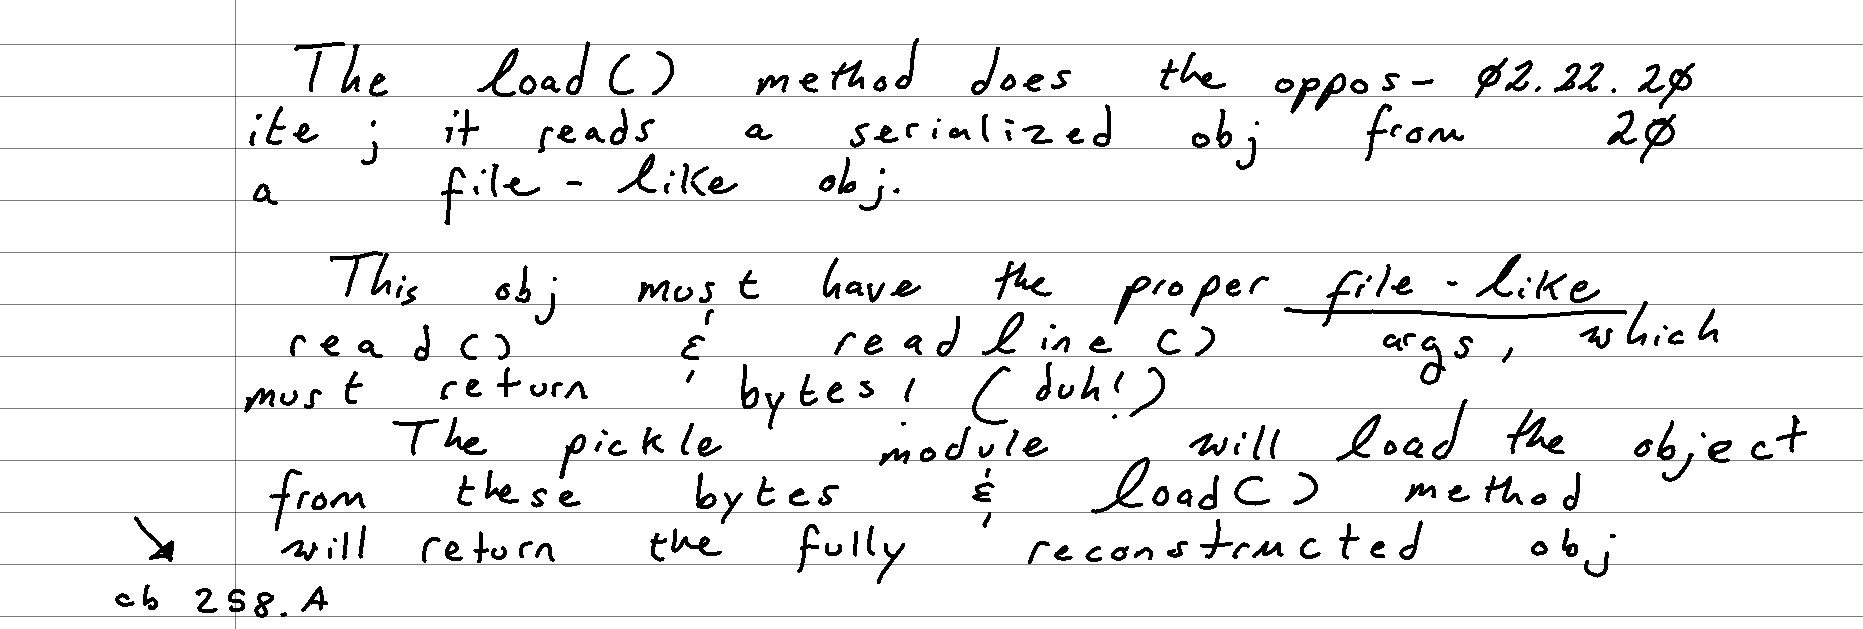 The load() method does the oppos- Ø2.22.2Ø
ite ; it reads a serialized obj from 2Ø
a file - like obj.
This obj must have the proper file - like
read() & readline() args, which
must return bytes! (duh!)
The pickle module will load the object
from these bytes & load() method
will return the fully reconstructed obj
cb 258.A